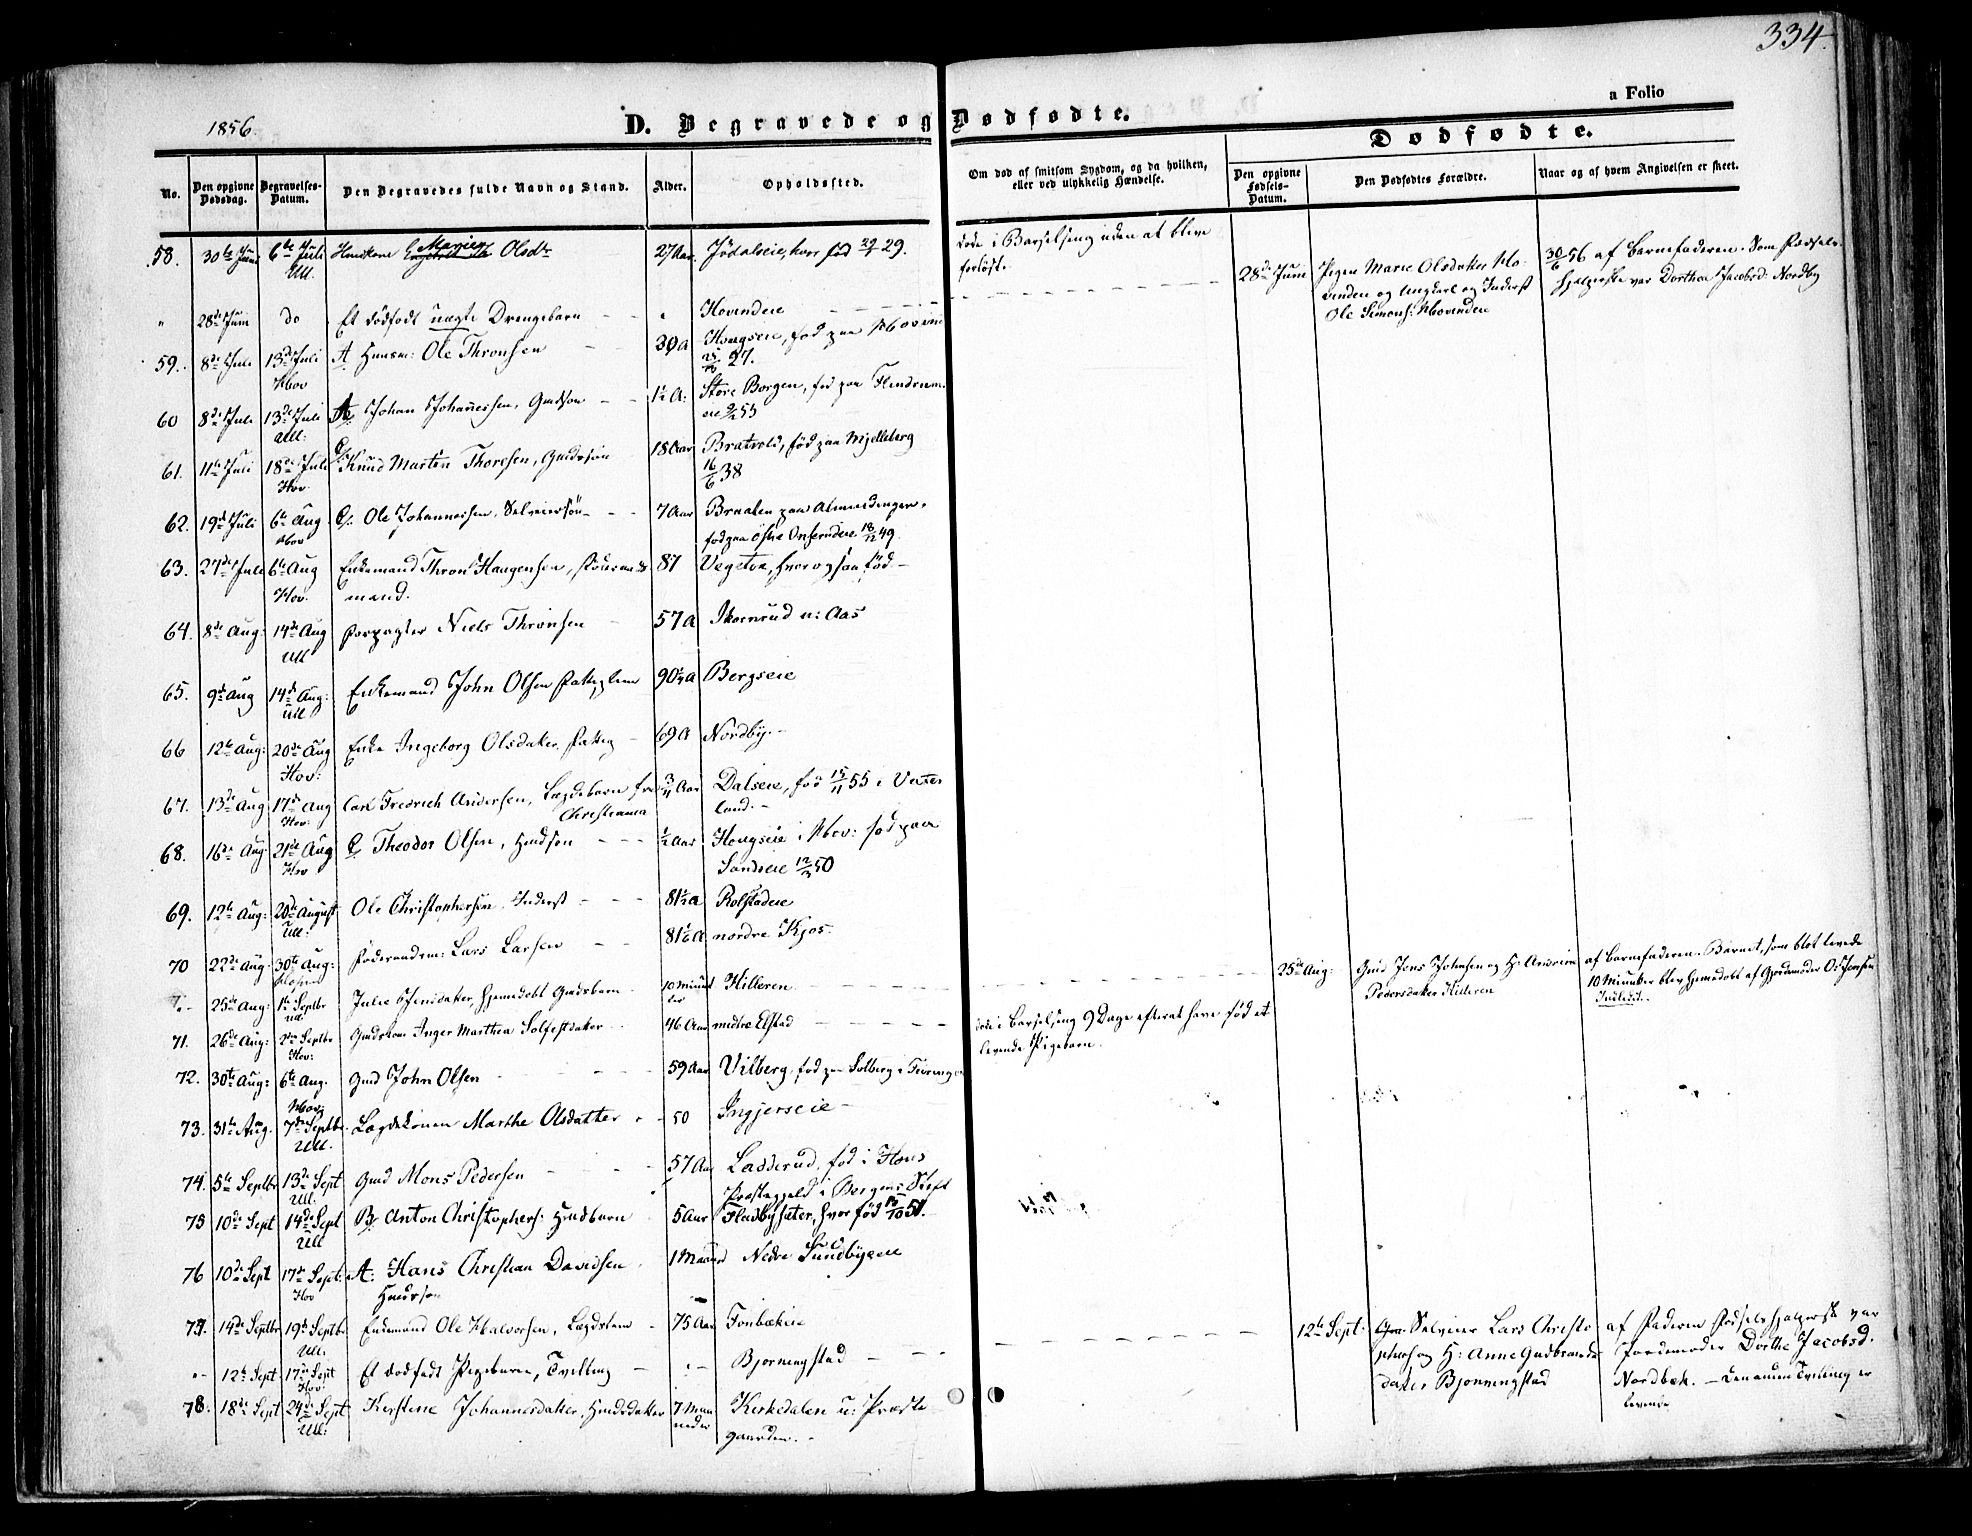 334.
a Folio
1856.
D. Begravede og Dødfødte.
Dødfødte.
No.
Den opgivne Dødsdag.
Begravelses-Datum.
Den Begravedes fulde Navn og Stand.
Alder.
Opholdssted.
Om død af smitsom Sygdom, og da hvilken,
eller ved ulykkelig Hændelse.
Den opgivne Fødsels-Datum.
Den Dødfødtes Forældre.
Naar og af hvem Angivelsen er skeet.
58. 30te Juni 6te Juli Huuskone Marie Olsdtr 27 Aar Jödalseie, hvor fød 29. døde i Barselseng uden at blive
Ull. forløst.
" 28de Juni do Et dødfødt uægte Drengebarn " Hovindeie 28de Juni Pigen Marie Olsdatter Ho-
vinden og Ungkarl og Inderst
Ole Simens: Hovindeie
30/6 56 af Barnefaderen. Som Fødsels-
hjælperske var Dorthea Jacobsd: Nordby
59. 8de Juli 13de Juli A Huusm: Ole Thronsen 30 A Hougseie, fød paa Hovin
Hov 27.
60 8de Juli 13de Juli Johan Johannessen, Gmdsøn 1½ A: Store Borgen, fød paa Flindrum-
Ull: eie 9/2 55
61. 11te Juli 18de Juli Knud Martin Thoresen, Gmdssøn 18 Aar Bratvold, fød paa Mjelleberg
Hov 16/6 38
62. 19de Juli 6te Aug Ole Johannessen, Selveiersøn 7 Aar Braaten paa Almendingen,
Hov fød paa Østre Onsrudeie 18/12 49.
63. 27de Juli 6te Aug Enkemand Thron Haagensen, Føderaads- 87 Vegstein, hvor ogsaa fød
Hov. mand.
64. 8de Aug: 14de Aug Forpagter Niels Thronsen 57 A Skornrud u: Aas
Ull
65. 9de Aug 14de Aug: Enkemand John Olsen Fattiglem 90½ A Bergseie
Ull
66 12te Aug: 20de Aug Enke Ingeborg Olsdatter, Fattig 69 A Nordby.
Hov:
67. 13de Aug 17de Aug Carl Fredrich Andersen, Lægdebarn fra 3/4 Aar Dalseie, fød 15/11 55 i Vater
Hov: Christiania land.
68. 16de Aug: 21de Aug Theodor Olsen, Hmdsøn ½ Aar Hougseie i Hov: fød paa
Hov Sandseie 12/3 50
69. 12te Aug: 20de August Ole Christophersen Inderst 81½ A Rolstadeie
Ull:
70 22de Aug: 30te Aug: Føderaadsm: Lars Larsen 81½ A nordre Kjos.
25de Aug: 1te Septbr Julie Jensdatter, hjemmedøbt Gmdsbarn 10 Minut- Hilleren
Ull ter
25de Aug: Gmd Jens Johnsen og H: Andrine
Pedersdatter Hilleren
af Barnefaderen. Barnet, som blot levede
10 Minutter blev hjemmedøbt af Gjordemoder O: Jensen
71. 26de Aug: 2den Septbr Gmdskone Inger Marthea Solfestdatter 46 Aar nedre Elstad døde i Barselseng 9 Dage efterat have fød et
Hov: levende Pigebarn.
72. 30te Aug: 6te Aug. Gmd John Olsen 59 Aar Vilberg, fød paa Solberg i Feiringen
Hov:
73. 31te Aug. 7de Septbr. Lægdskonen Marthe Olsdatter 50 Ingjerseie
Ull.
74. 5te Septbr 13de Sept Gmd Mons Pedersen 57 Aar Ladderud, fød i Hous
Ull. Præstegjeld i Bergens Stift
75 10de Sept 14de Sept Anton Christophers: Hmdbarn 5 Aar Fladbysæter, hvor fød /10 51.
Ull
76 10de Sept 17de Sept: A: Hans Christian Davidsen 1 Maaned Nedre Sundbyeie
Hov Hmdssøn
77. 14de Septbr 19de Septbr. Enkemand Ole Halvorsen, Lægdslem 75 Aar Fonbækeie
Ull.
" 12te Sept 17de Sept Et dødfødt Pigebarn, Tvilling " Bjorningstad
Hov:
12te Sept: Selveier Lars Christo
phers og H: Anne Gudbrands
datter Bjorningstad
af Faderen Fødselshjælpersk var
Jordemoder Dorthe Jacobsd.
Nordbæk. – Den anden Tvilling er
levende
78. 18de Sept 24de Sept Kerstine Johannesdatter, Hmdsdatter 7 Maa Kirkedalen u: Præste
Ull: neder gaarden.